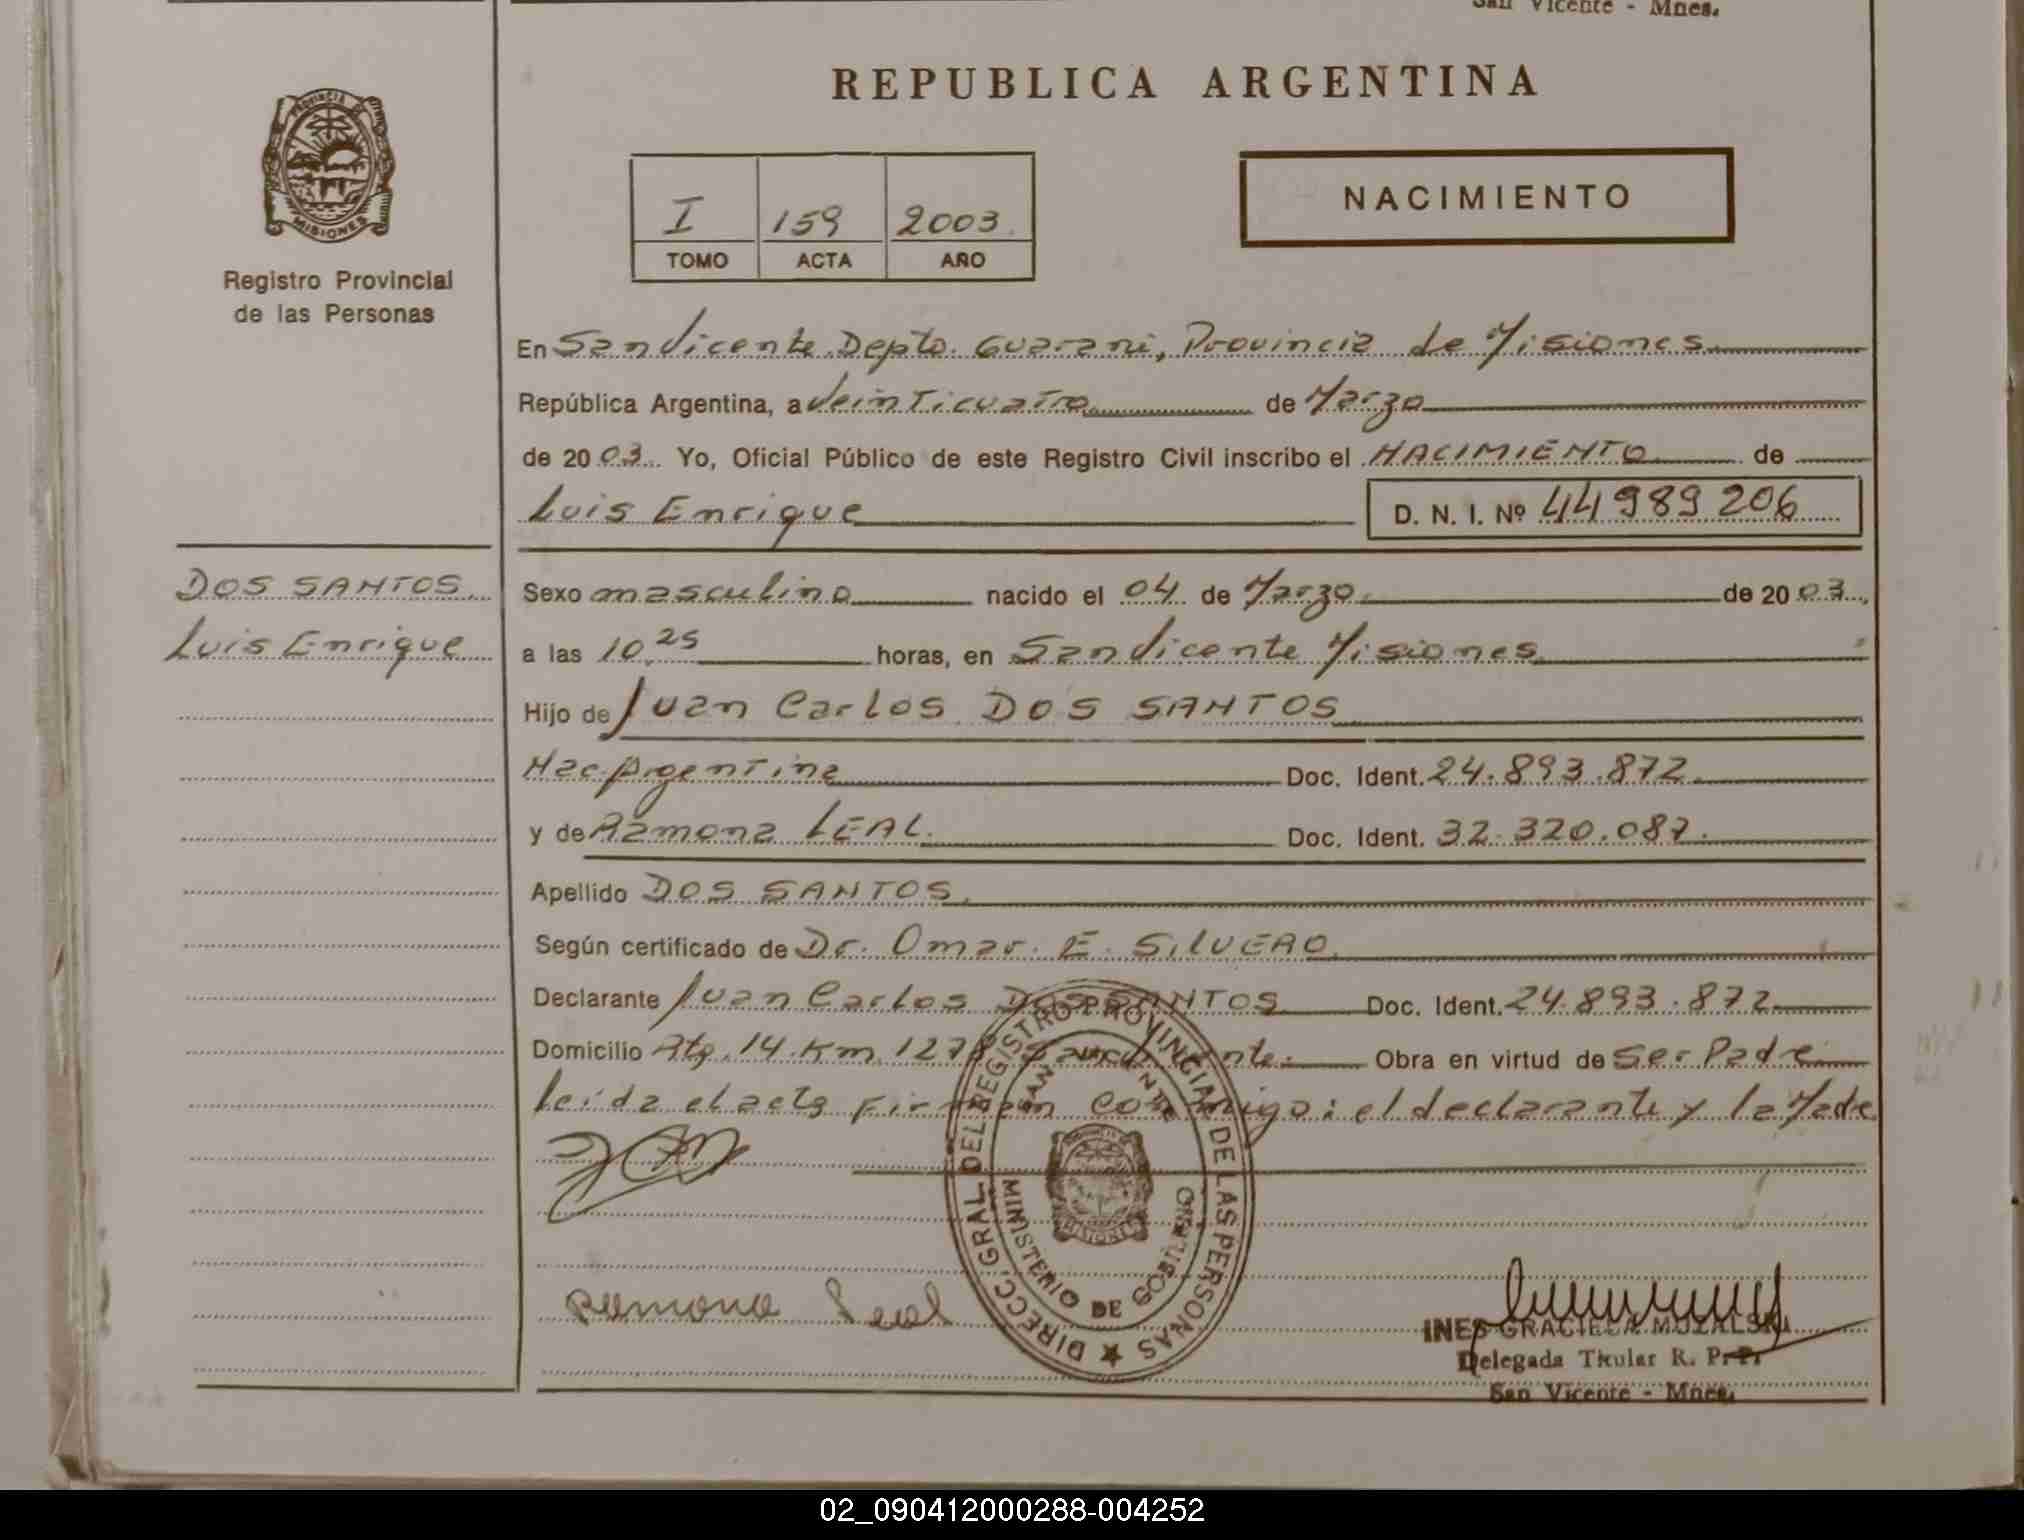 San Vicente - Mnes.
REPUBLICA ARGENTINA
PROVINCIA DE
MISIONES
Registro Provincial
de las Personas
I 159 2003
TOMO ACTA AÑO
NACIMIENTO
En San Vicente. Depto. Guarani, Provincia de Misiones
República Argentina, a Veinticuatro de Marzo
de 2003. Yo, Oficial Público de este Registro Civil inscribo el NACIMIENTO de
Luis Enrique D. N. I. Nº 44989206
DOS SANTOS.
Luis Enrique
Sexo masculino nacido el 04 de Marzo de 2003
a las 10.25 horas, en San Vicente Misiones
Hijo de Juan Carlos DOS SANTOS
Nac. Argentina Doc. Ident. 24.893.872
y de Ramona LEAL. Doc. Ident. 32.320.087.
Apellido DOS SANTOS.
Según certificado de Dr. Omar. E. SILVERO.
Declarante Juan Carlos DOS SANTOS Doc. Ident. 24.893.872
Domicilio Rta. 14. Km. 1278 San Vicente. Obra en virtud de Ser Padre
leída el acta firman conmigo: el declarante y la Madre
DIRECC. GRAL. DEL REGISTRO PROVINCIAL DE LAS PERSONAS
SAN VICENTE
MINISTERIO DE GOBIERNO
MISIONES
Ramona Leal
INES GRACIELA MUZALSKI
Delegada Titular R. P. P.
San Vicente - Mnes.
02_090412000288-004252